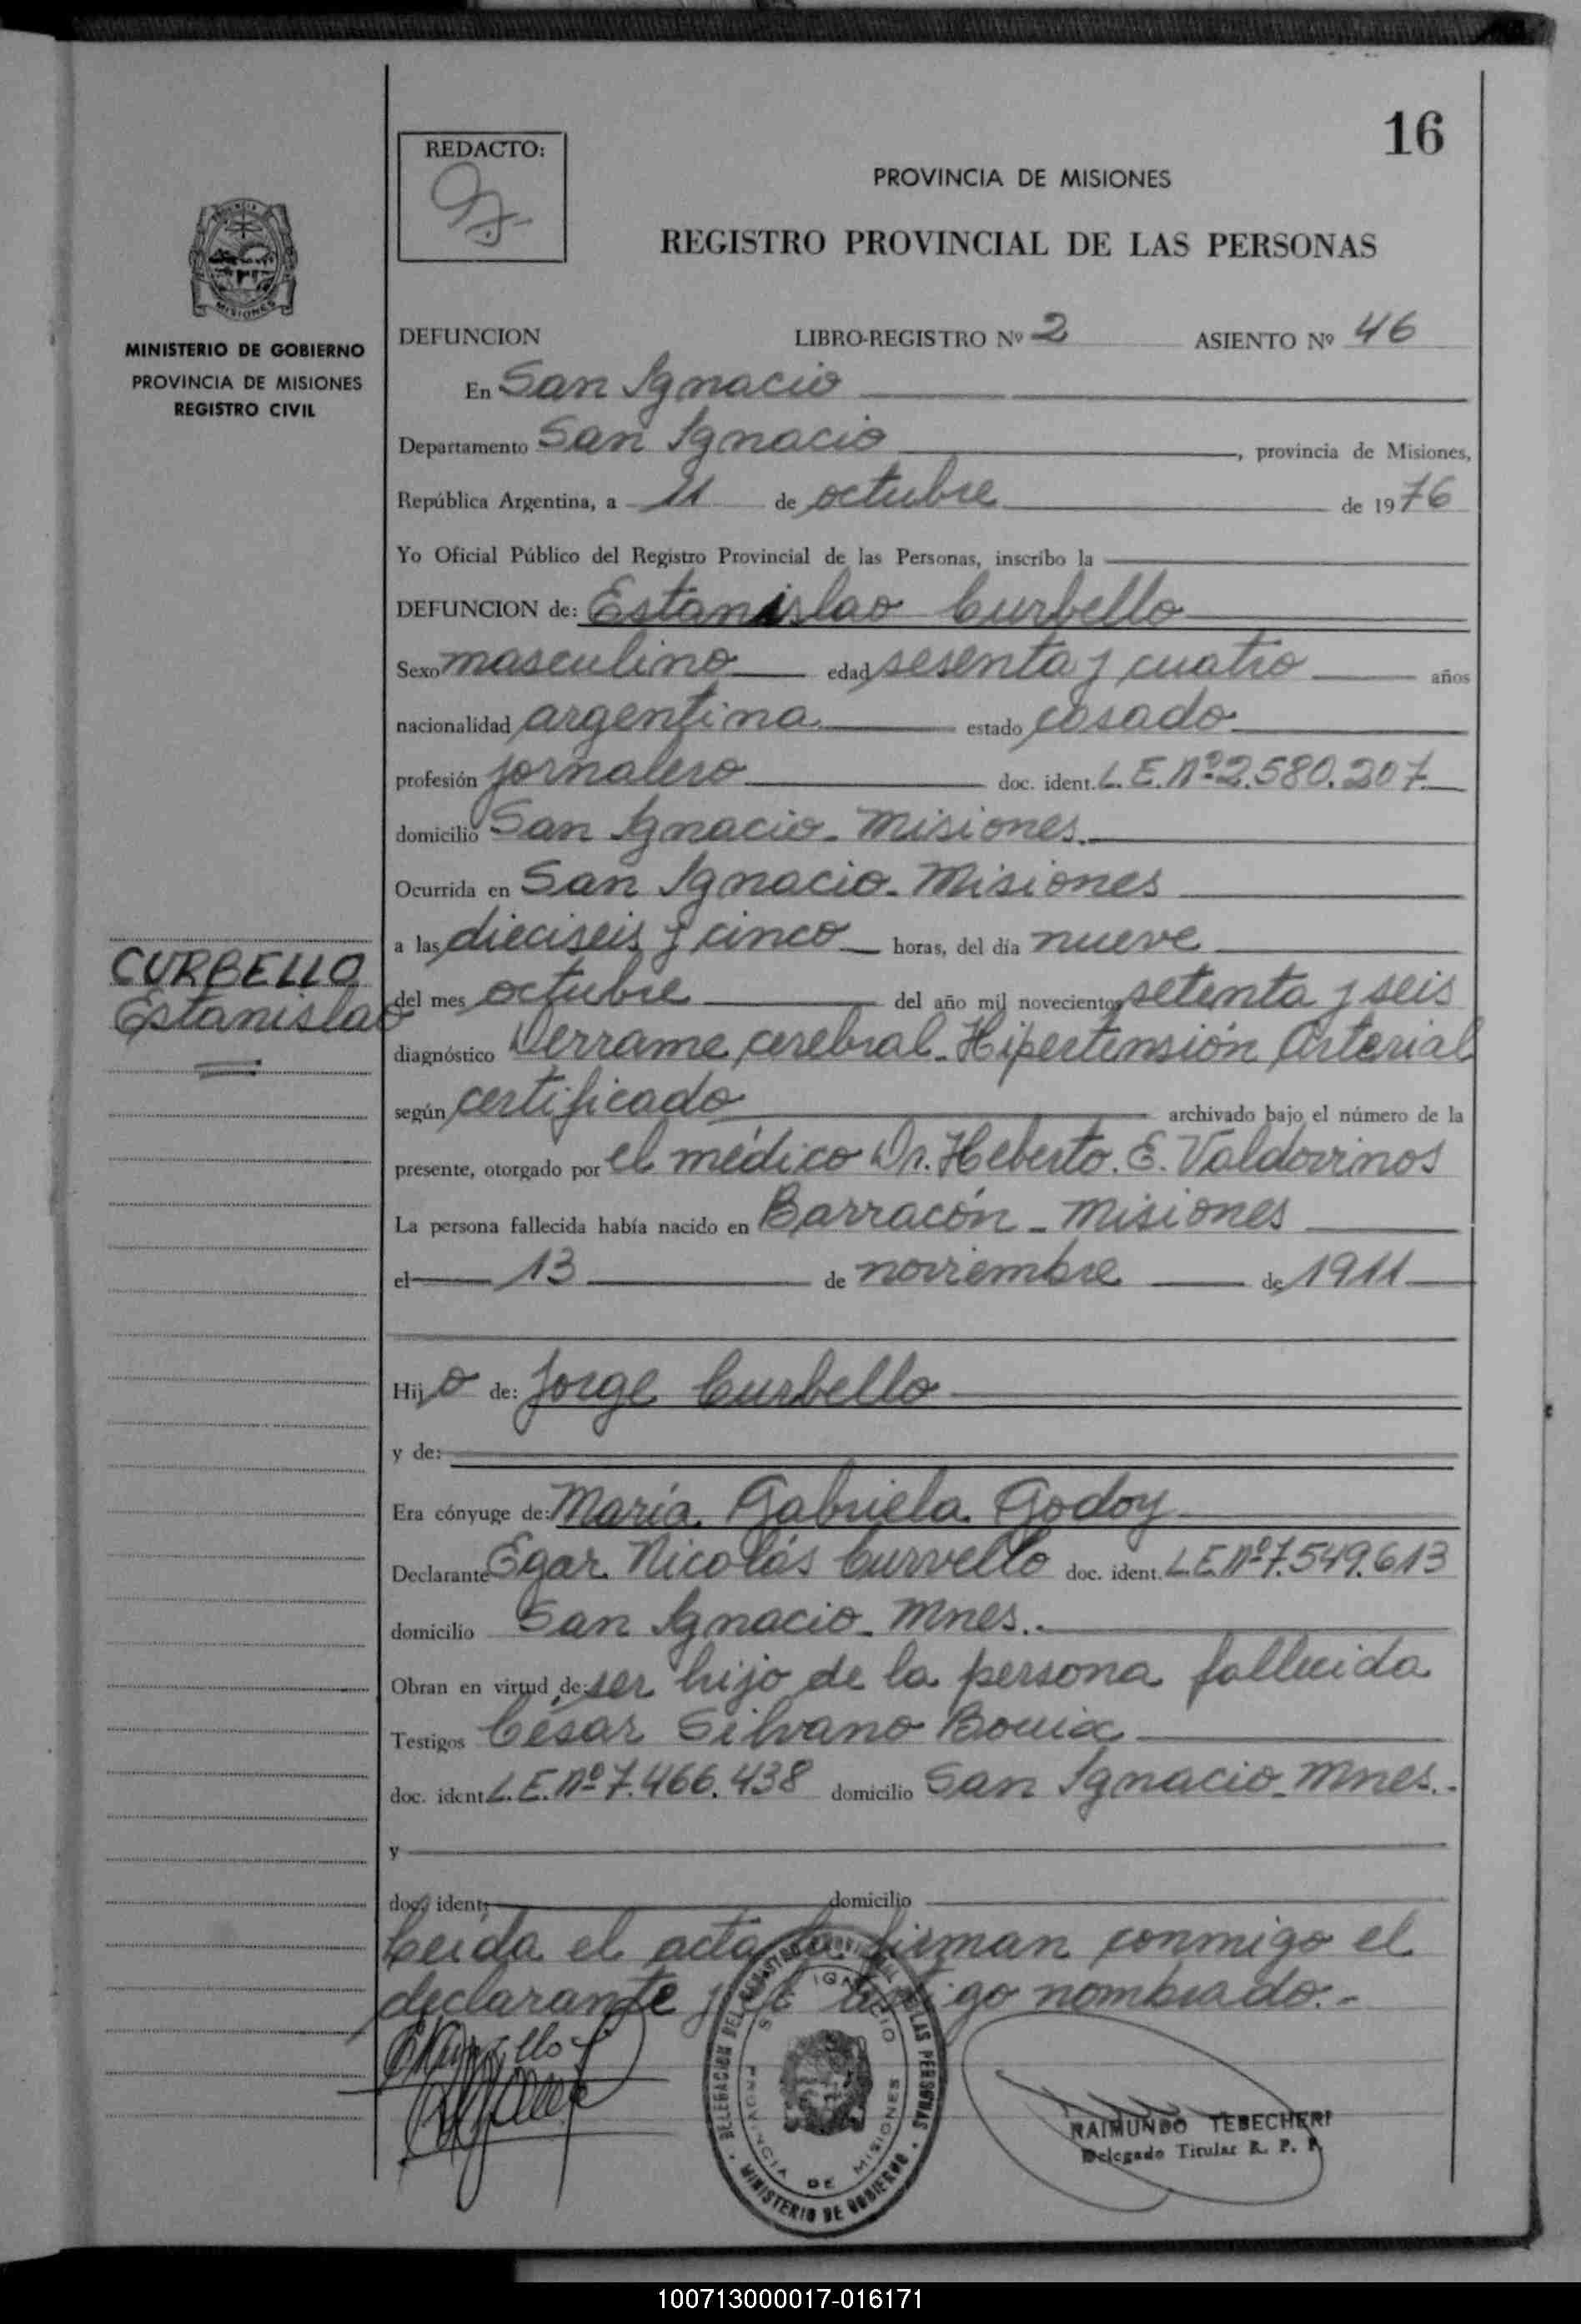 16
REDACTO:
PROVINCIA DE MISIONES
REGISTRO PROVINCIAL DE LAS PERSONAS
MISIONES
MINISTERIO DE GOBIERNO
PROVINCIA DE MISIONES
REGISTRO CIVIL
DEFUNCION LIBRO-REGISTRO Nº 2 ASIENTO Nº 46
En San Ignacio
Departamento San Ignacio, provincia de Misiones,
República Argentina, a 11 de octubre de 1976
Yo Oficial Público del Registro Provincial de las Personas, inscribo la
DEFUNCION de: Estanislao Curbello
Sexo masculino edad sesenta y cuatro años
nacionalidad argentina estado casado
profesión jornalero doc. ident. L.E.Nº2.580.207
domicilio San Ignacio - Misiones
Ocurrida en San Ignacio - Misiones
a las dieciseis y cinco horas, del día nueve
CURBELLO
Estanislao
del mes octubre del año mil novecientos setenta y seis
diagnóstico Derrame cerebral - Hipertensión Arterial
según certificado archivado bajo el número de la
presente, otorgado por el médico Dr. Heberto. E. Valdovinos
La persona fallecida había nacido en Barracón - Misiones
el 13 de noviembre de 1911
Hijo de: Jorge Curbello
y de:
Era cónyuge de: María Gabriela Godoy
Declarante Egar Nicolás Curvello doc. ident. L.E.Nº7.549.613
domicilio San Ignacio - Mnes..
Obran en virtud de: ser hijo de la persona fallecida
Testigos César Silvano Bouix
doc. ident. L.E.Nº7.466.438 domicilio San Ignacio - Mnes.-
y
doc. ident. domicilio
Leída el acta la firman conmigo el
declarante y el testigo nombrado.-
DELEGACION DEL REGISTRO PROVINCIAL DE LAS PERSONAS
SAN IGNACIO
PROVINCIA DE MISIONES
MINISTERIO DE GOBIERNO
RAIMUNDO TEBECHERI
Delegado Titular R. P. P.
100713000017-016171